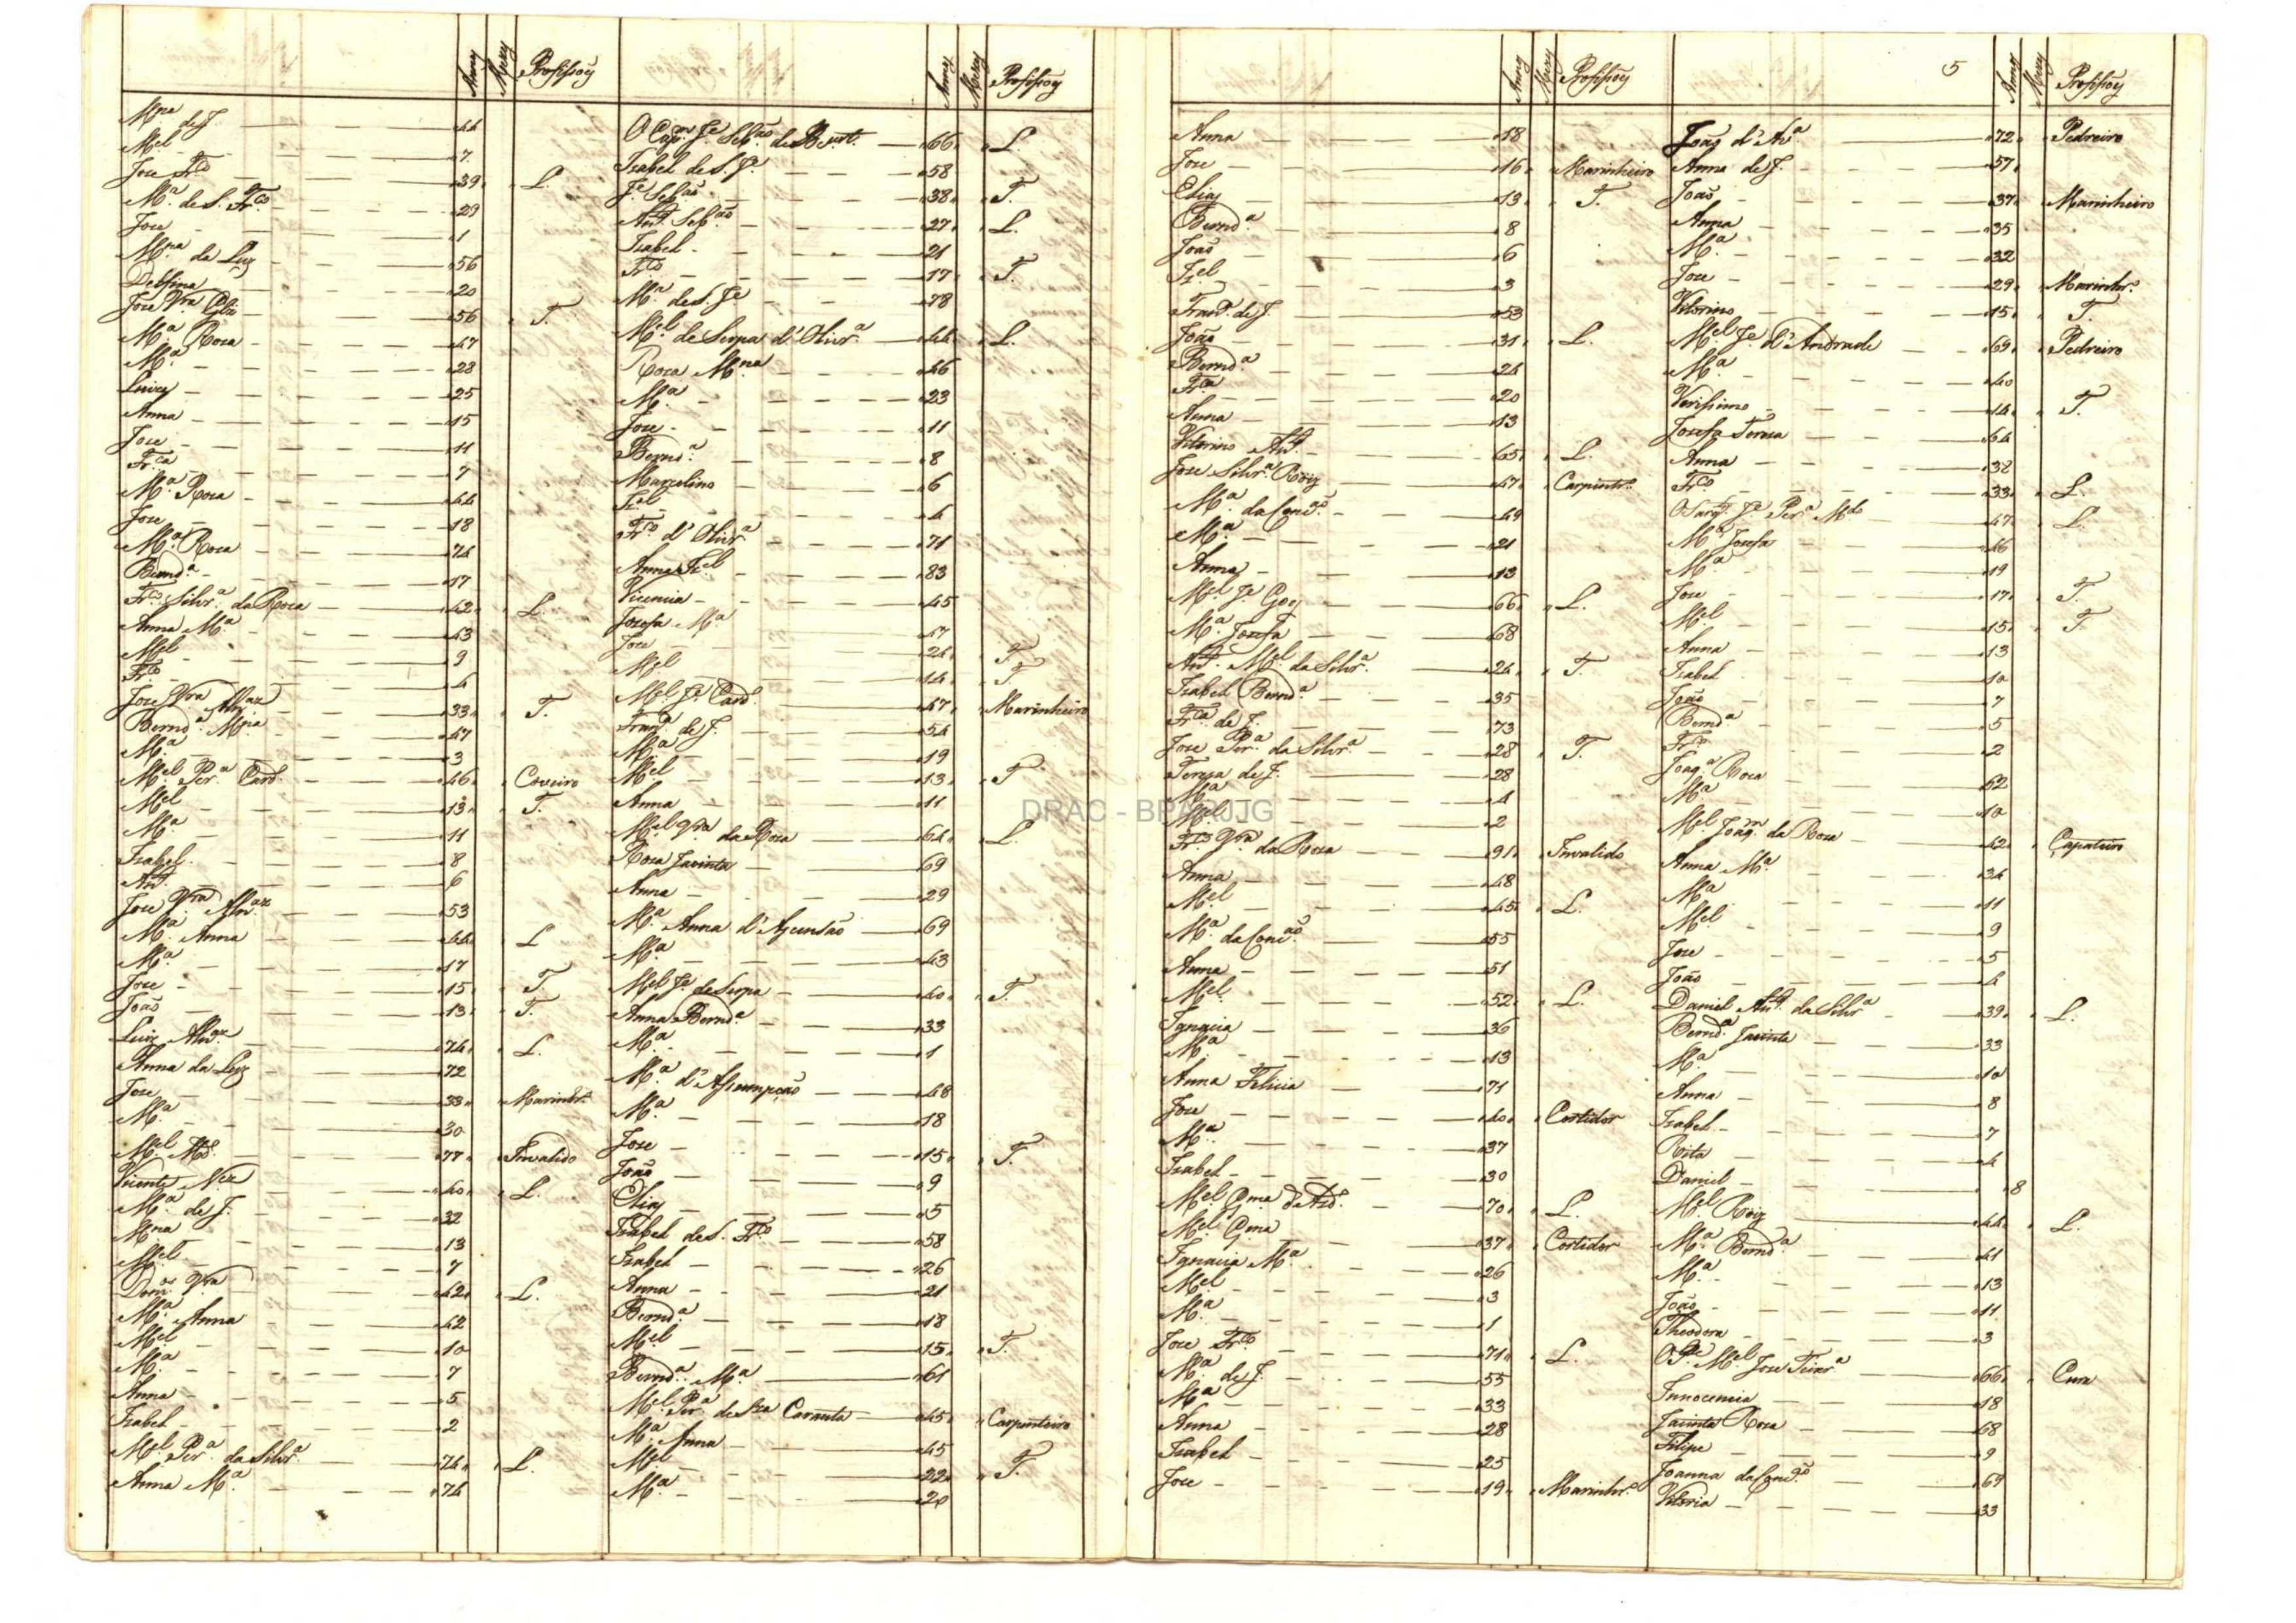 Annos Mezes Profissoẽs
Mna de J. 44
Mel 7
Joze Frco 39 L.
Ma de S. Frco 29
Joze 1
Mna da Luz 56
Delfina 20
Joze Vra 56 T.
Ma Roza 47
Ma 28
Luiza 25
Anna 15
Joze 11
Frca 7
Ma Roza 44
Joze 18
Ma Roza 74
Bernda 17
Frco Silvra da Roza 42 L.
Anna Ma 43
Mel 9
Frco 4
Joze Vra 33 T.
Bernda Mna 47
Ma 3
Mel Pera Card. 46 Coveiro
Mel 13 T.
Ma 11
Izabel 8
Anto 6
Joze Vra 53
Ma Anna 44 L
Ma 17
Joze 15 T.
João 13 T.
Luiz 74 L.
Anna da Luz 72
Joze 33 Marinhro
Ma 30
Mel 77 Invalido
Vicente 40 L.
Ma de J. 32
Mna 13
Mel 7
Domos Vra 42 L.
Ma Anna 42
Mel 10
Ma 7
Anna 5
Izabel 2
Mel Pera da Silvra 74 L.
Anna Ma 74
Annos Mezes Profissoẽs
O Capm Je Sebam de Bent. 66 L.
Izabel de S. Je 58
Je Sebam 38 T.
Anto Sebam 27 L.
Izabel 21
Frco 17 T.
Ma de S. Je 78
Mel de Serpa d'Olivra 44 L.
Roza Mna 46
Ma 23
Joze 11
Bernda 8
Marcelino 6
Izel 4
Frco d'Olivra 71
Anna Izel 83
Vicencia 45
Jozefa Ma 47
Joze 24 T.
Mel 14 T.
Mel Je Card. 47 Marinheiro
Franca de J. 54
Ma 19
Mel 13 T
Anna 11
Mel Vra da Roza 64 L.
Roza Jacinta 69
Anna 29
Ma Anna d'Açensão 69
Ma 43
Mel Je de Serpa 40 T.
Anna Bernda 33
Ma 1
Ma d'Assumpção 48
Ma 18
Joze 15 T.
João 9
Elias 5
Izabel de S. Frco 58
Izabel 26
Anna 21
Bernda 18
Mel 15 T.
Bernda Ma 61
Mel Pera de Sza Caranta 45 Carpinteiro
Ma Anna 45
Mel 22 T.
Ma 20
Annos Mezes Profissoẽs
Anna 18
Joze 16 Marinheiro
Elias 13 T.
Bernda 8
João 6
Izel 3
Franca de J. 53
João 31 L.
Bernda 24
Frca 20
Anna 13
Vitorino Anto 65 L.
Joze Silvra Roiz 47 Carpintro
Ma da Concão 49
Ma 21
Anna 13
Mel Je Goes 66 L.
Ma Jozefa 68
Anto Mel da Silvra 24 T.
Izabel Bernda 35
Frca de J. 73
Joze Pera da Silvra 28 T.
Tereza de J. 28
Ma 4
Mel 2
Frco Vra da Roza 91 Invalido
Anna 48
Mel 45 L.
Ma da Concão 55
Anna 51
Mel 52 L.
Ignacia 36
Ma 13
Anna Felicia 71
Joze 40 Cortidor
Ma 37
Izabel 30
Mel Gma d'Azd. 70 L.
Mel Gma 37 Cortidor
Ignacia Ma 26
Mel 3
Ma 1
Joze Frco 71 L.
Ma de J. 55
Ma 33
Anna 28
Izabel 25
Joze 19 Marinhro
5
Annos Mezes Profissoẽs
João d'Ava 72 Pedreiro
Anna de J. 57
João 37 Marinheiro
Anna 35
Ma 32
Joze 29 Marinhro
Vitorino 15 T.
Mel Je d'Andrade 69 Pedreiro
Ma 40
Verissimo 14 T.
Jozefa Tereza 64
Anna 32
Frco 33 L.
O Sargto Je Pera 47 L.
Ma Jozefa 46
Ma 19
Joze 17 T.
Mel 15 T
Anna 13
Izabel 10
João 7
Bernda 5
Frco 2
Joaqa Roza 62
Ma 10
Mel Joaqm da Roza 42 Çapateiro
Anna Ma 34
Ma 11
Mel 9
Joze 5
João 4
Daniel Anto da Silvra 39 L.
Bernda Jacinta 33
Ma 10
Anna 8
Izabel 7
Rita 4
Daniel 8
Mel Roiz 44 L.
Ma Bernda 41
Ma 13
João 11
Theodora 3
O Pe Mel Joze Teixra 66 Cura
Innocencia 18
Jacinta Roza 68
Filipe 9
Joanna da Concão 69
Vitoria 33
DRAC - BPARJJG